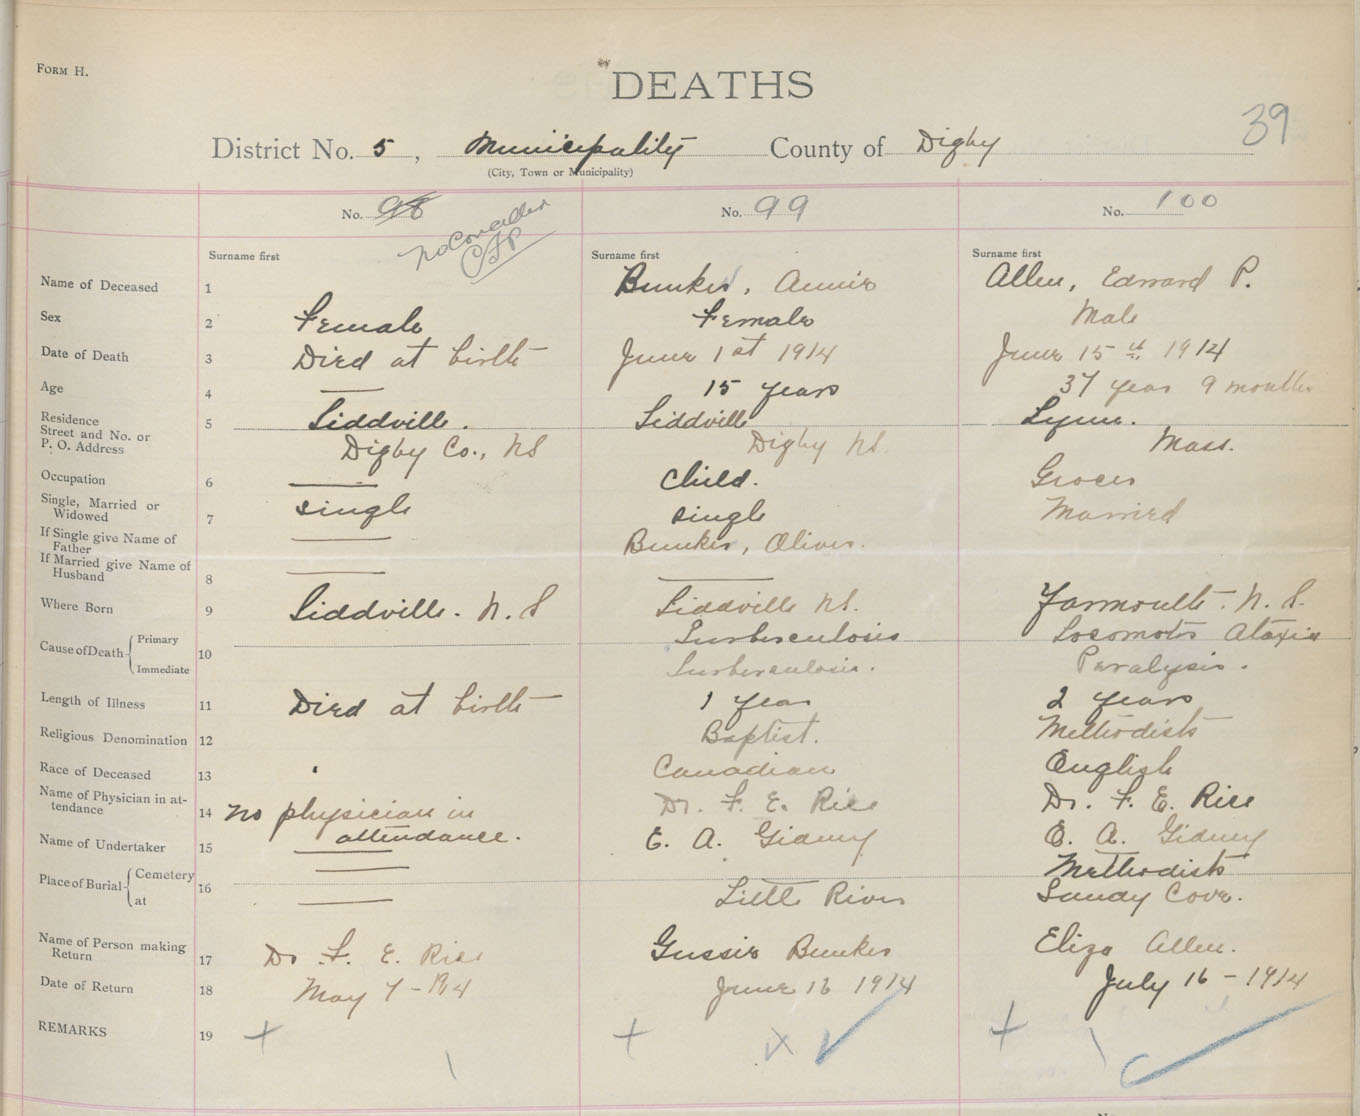 FORM H.
DEATHS
39
District No. 5, Municipality County of Digby
(City, Town or Municipality)
No. 98 No. 99 No. 100
no CFP
Surname first Surname first Surname first
Name of Deceased 1 Bunker, Annie Allen, Edward P.
Sex 2 Female Female Male
Date of Death 3 Died at birth June 1st 1914 June 15th 1914
Age 4 — 15 years 37 years 9 months
Residence Street and No. or P. O. Address 5 Tiddville. Tiddville Lynn.
Digby Co., NS Digby NS. Mass.
Occupation 6 — Child. Grocer
Single, Married or Widowed 7 Single Single Married
If Single give Name of Father — Bunker, Oliver.
If Married give Name of Husband 8 — —
Where Born 9 Tiddville. N. S Tiddville NS. Yarmouth. N. S.
Cause of Death { Primary 10 Turberculosis Locomotor Ataxia
Immediate Turberculosis. Paralysis.
Length of Illness 11 Died at birth 1 year 2 years
Religious Denomination 12 Baptist. Methodist
Race of Deceased 13 Canadian English
Name of Physician in attendance 14 No physician in attendance. Dr. F. E. Rice Dr. F. E. Rice
Name of Undertaker 15 — E. A. Gidney E. A. Gidney
Place of Burial { Cemetery 16 — Methodist
at — Little River Sandy Cove.
Name of Person making Return 17 Dr F. E. Rice Gussie Bunker Eliza Allen.
Date of Return 18 May 7-1914 June 16 1914 July 16-1914
REMARKS 19 + + x ✓ +
No.